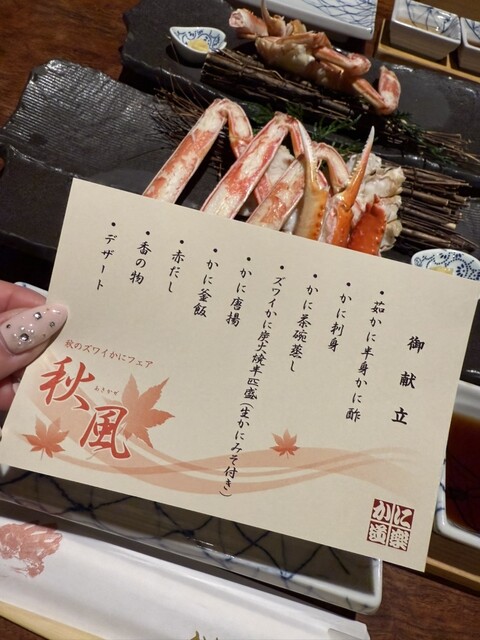 御献立
・茹かに半身かに酢
・かに刺身
・かに茶碗蒸し
・ズワイかに炭火焼半匹盛(生かにみそ付き)
・かに唐揚
・かに釜飯
・赤だし
・香の物
・デザート
秋のズワイかにフェア
秋風
あきかぜ
かに道楽